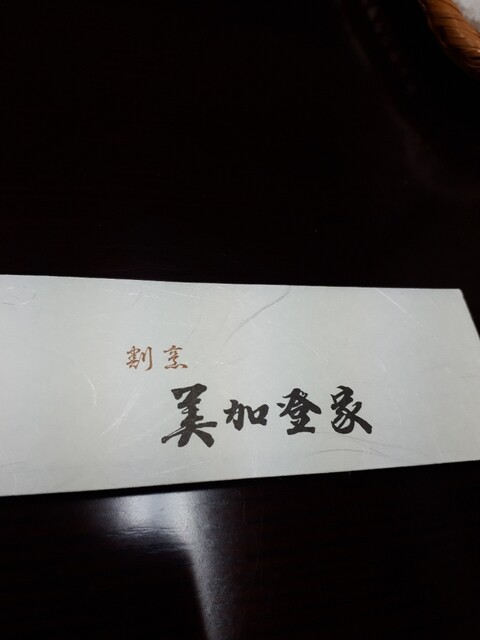 割烹
美加登家